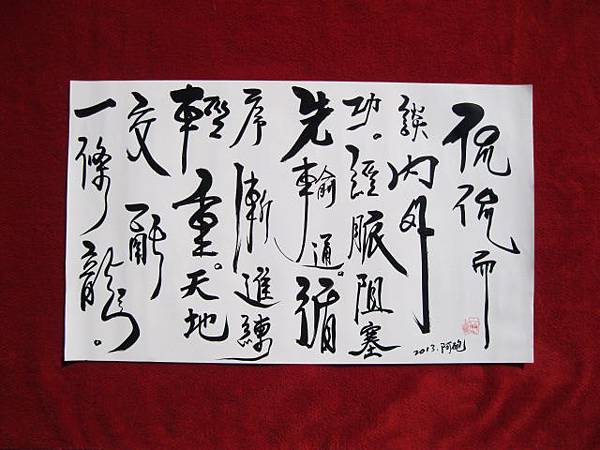 侃侃而
談內外
功。經脈阻塞
先輸通。循
序漸進練
輕重。天地
交融
一條龍。
2013.阿砲